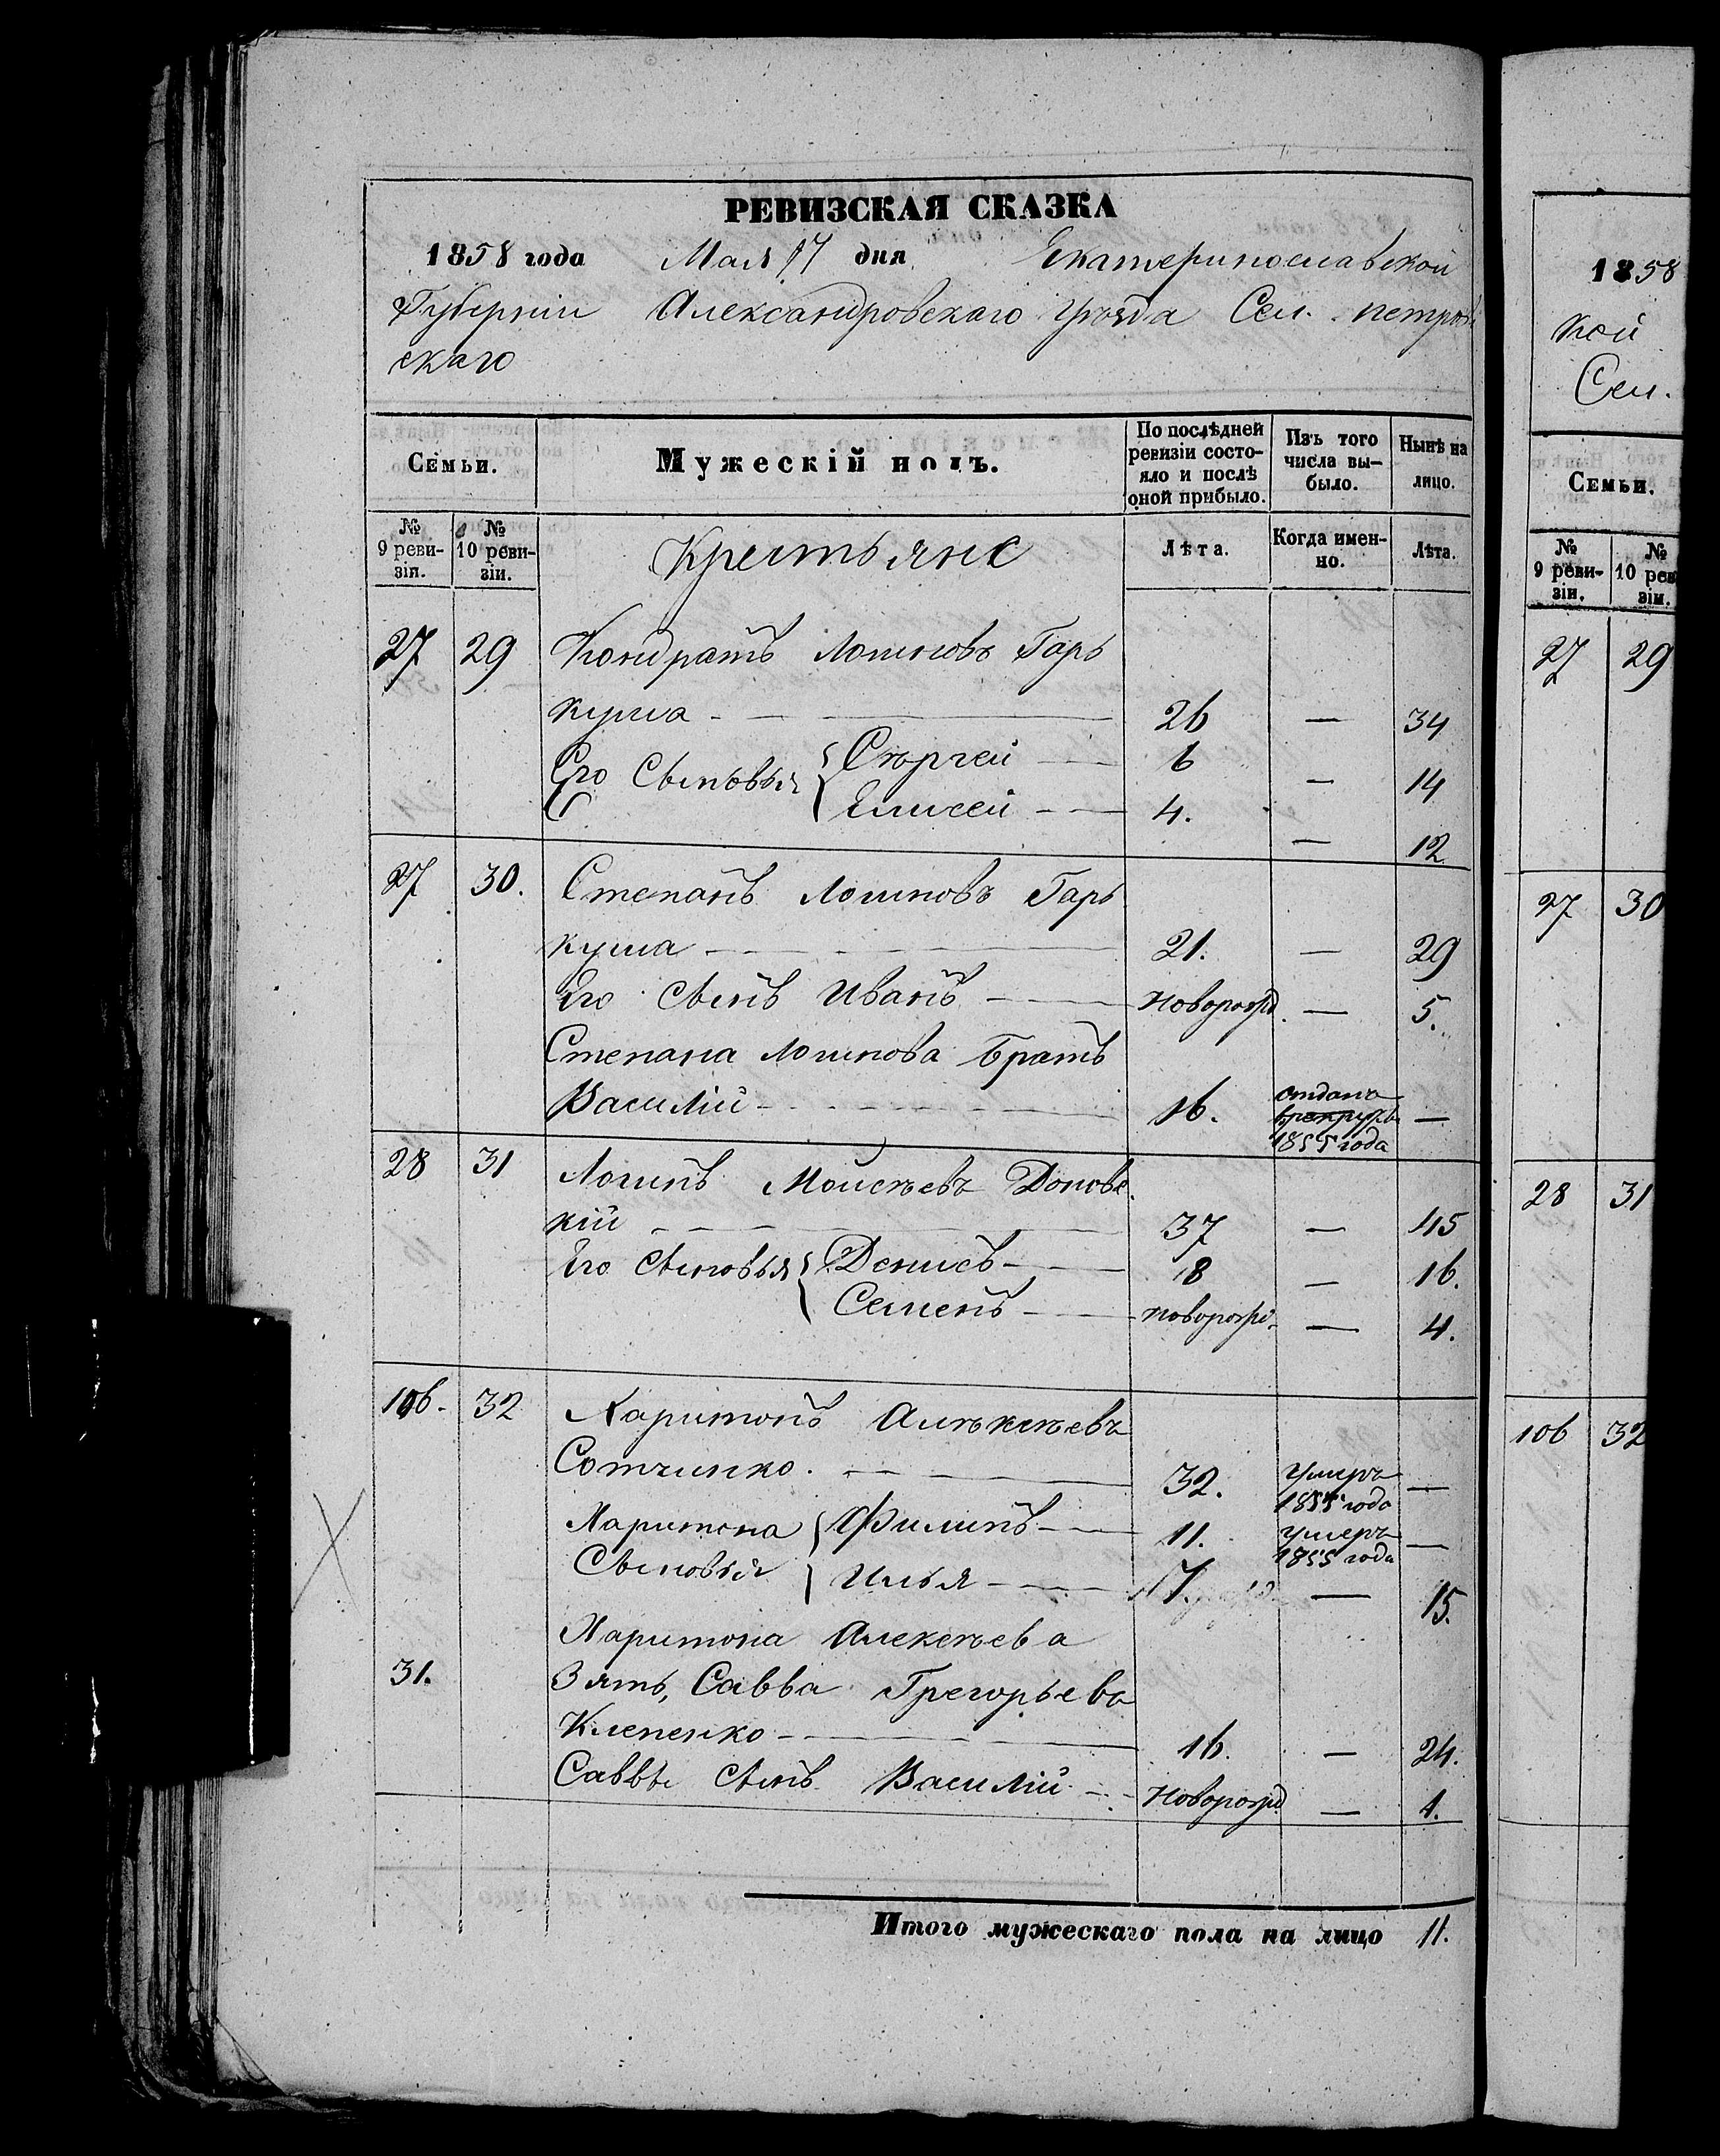 РЕВИЗСКАЯ СКАЗКА
1858 года Мая 17 дня Екатеринославской
Губерніи Александровскаго Уѣзда Сел. Петров
скаго
Семьи.
Мужескій полъ.
По послѣдней ревизіи состо-
яло и послѣ оной прибыло.
Изъ того числа вы-
было.
Нынѣ на лицо.
№ 9 реви-
зіи.
№ 10 реви-
зіи.
Крестьяне
Лѣта.
Когда имен-
но.
Лѣта.
27 29 Кондратъ Логиновъ Гарь
куша - 26 — 34
Его Сыновья { Сѣргей 6 — 14
Елисей 4. — 12
27 30. Степанъ Логиновъ Гарь
куша 21. — 29
Его Сынъ Иванъ Новорожд. — 5.
Степана Логинова Братъ
Василій 16. отданъ в рекруты 1855 года —
28 31 Логинъ Моисѣевъ Донов
кій 37 — 45
Его Сыновья { Денисъ 8 — 16.
Семенъ Новорожд. — 4.
106. 32 Харитонъ Алѣксѣевъ
Сотчинко. 32. Умеръ 1855 года —
Харитона { Филипъ 11. Умеръ 1855 года —
Сыновья { Илья 7. — 15.
Харитона Алексѣева
31. Зять, Савва Грегорьевъ
Клепенко 16. — 24.
Саввы Сынъ Василій Новорожд — 1.
Итого мужескаго пола на лицо 11.
1858
кой
Сел.
Семьи.
№ 9 реви-
зіи.
№ 10 рев
зіи.
27 29
27 30
28 31
106 32